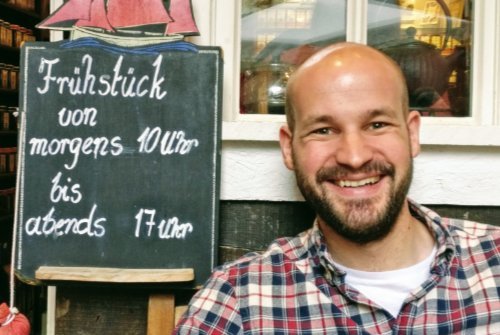 Frühstück
von
morgens 10 Uhr
bis
abends 17 Uhr